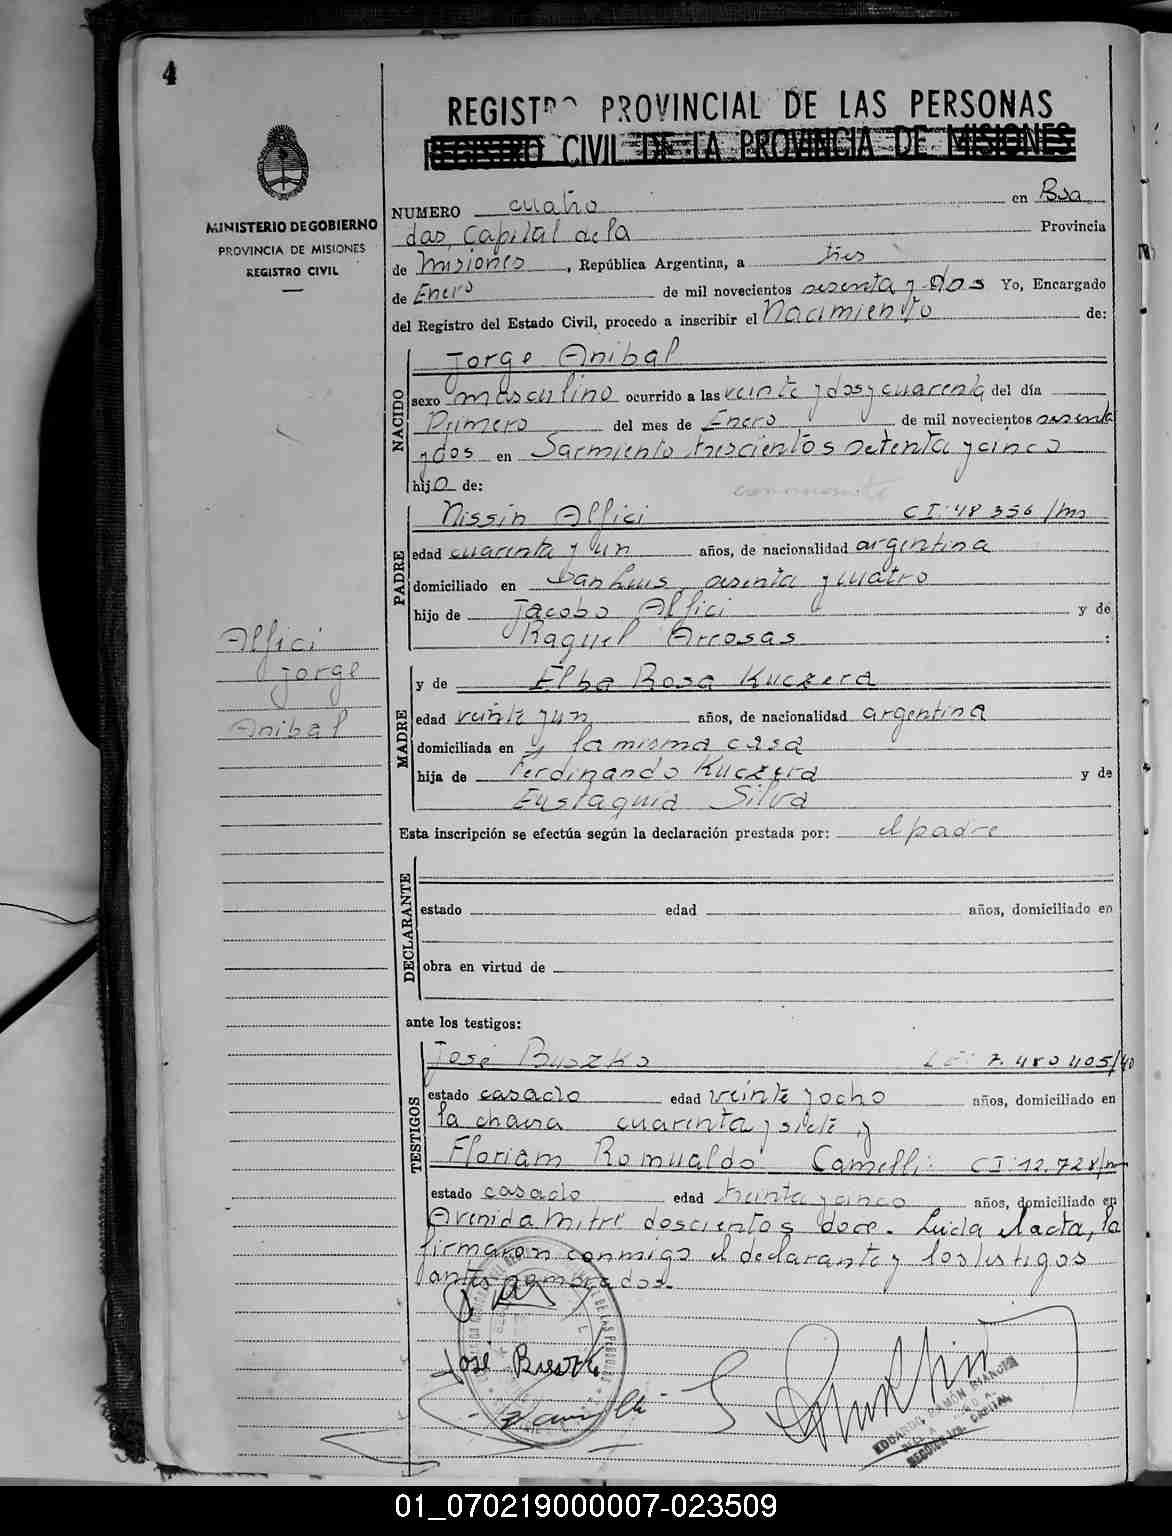 4
REGISTRO PROVINCIAL DE LAS PERSONAS
REGISTRO CIVIL DE LA PROVINCIA DE MISIONES
MINISTERIO DE GOBIERNO
PROVINCIA DE MISIONES
REGISTRO CIVIL
NUMERO cuatro en Psa
das, Capital de la Provincia
de Misiones, República Argentina, a tres
de Enero de mil novecientos sesenta y dos Yo, Encargado
del Registro del Estado Civil, procedo a inscribir el Nacimiento de:
NACIDO
Jorge Anibal
sexo masculino ocurrido a las veinte y dos y cuarenta del día
Primero del mes de Enero de mil novecientos sesenta
y dos en Sarmiento trescientos setenta y cinco
hijo de:
PADRE
Nissin Alfici CI: 48 356/mn
edad cuarenta y un años, de nacionalidad argentina
domiciliado en San Luis sesenta y cuatro
hijo de Jacobo Alfici y de
Raquel Arcosas :
Alfici
Jorge
Anibal
MADRE
y de Elba Rosa Kuczera
edad veinte y un años, de nacionalidad argentina
domiciliada en la misma casa
hija de Ferdinando Kuczera y de
Eustaquia Silva
Esta inscripción se efectúa según la declaración prestada por: el padre
DECLARANTE
estado edad años, domiciliado en
obra en virtud de
ante los testigos:
TESTIGOS
José Buszko LE: 7.480 405/40
estado casado edad veinte y ocho años, domiciliado en
la chacra cuarenta y siete y
Floriam Romualdo Camelli: CI: 12.728/mn
estado casado edad treinta y cinco años, domiciliado en
Avenida Mitre doscientos doce. Leida el acta, la
firmaron conmigo el declarante y los testigos
antes nombrados.
José Buszko
EDUARDO RAMÓN
01_070219000007-023509